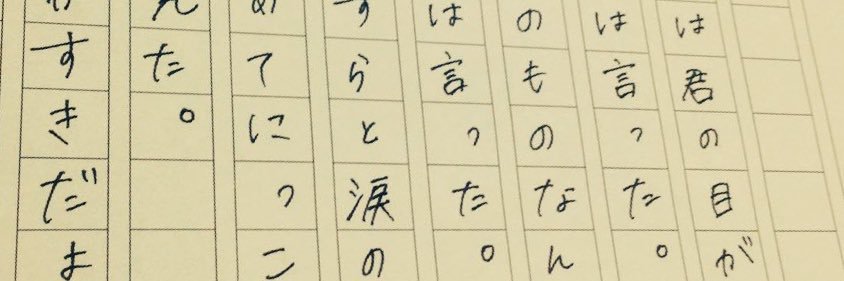 は君の目が
は言った。
のものなん
は言った。
すらと涙の
めてにっこ
んだ。
すきだよ